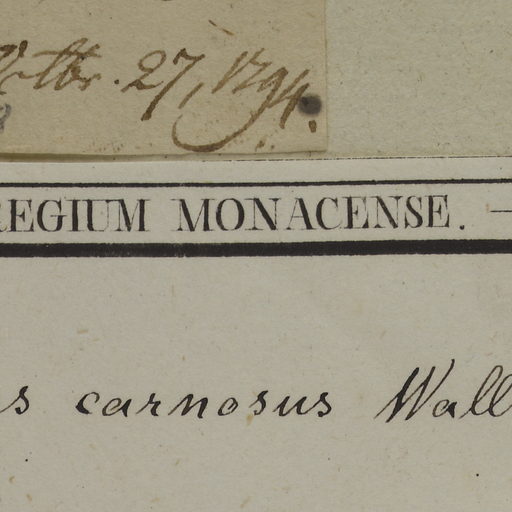 Octbr. 27, 1794.
REGIUM MONACENSE. —
s carnosus Wall